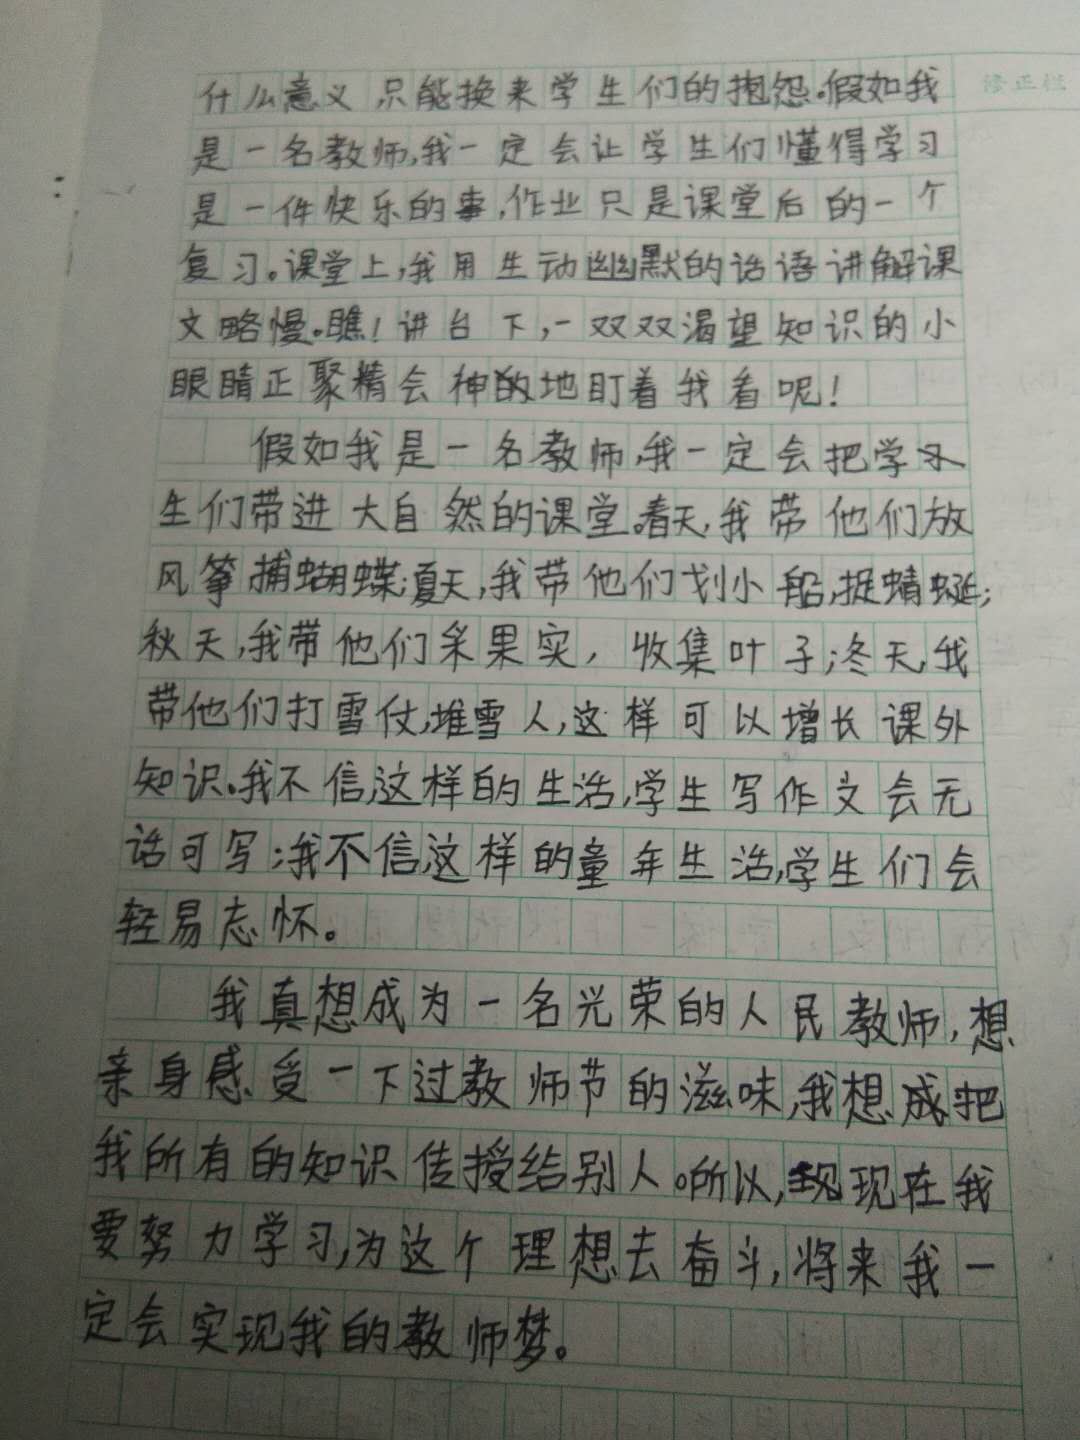 修正栏
什么意义,只能换来学生们的抱怨。假如我
是一名教师,我一定会让学生们懂得学习
是一件快乐的事,作业只是课堂后的一个
复习。课堂上,我用生动幽默的话语讲解课
文略慢。瞧!讲台下,一双双渴望知识的小
眼睛正聚精会神的地盯着我看呢!
假如我是一名教师,我一定会把学
生们带进大自然的课堂。春天,我带他们放
风筝,捕蝴蝶;夏天,我带他们划小船,捉蜻蜓;
秋天,我带他们采果实,收集叶子;冬天,我
带他们打雪仗,堆雪人,这样可以增长课外
知识。我不信,这样的生活,学生写作文会无
话可写;我不信,这样的童年生活,学生们会
轻易志怀。
我真想成为一名光荣的人民教师,想
亲身感受一下过教师节的滋味,我想成把
我所有的知识传授给别人。所以,现在我
要努力学习,为这个理想去奋斗,将来我一
定会实现我的教师梦。